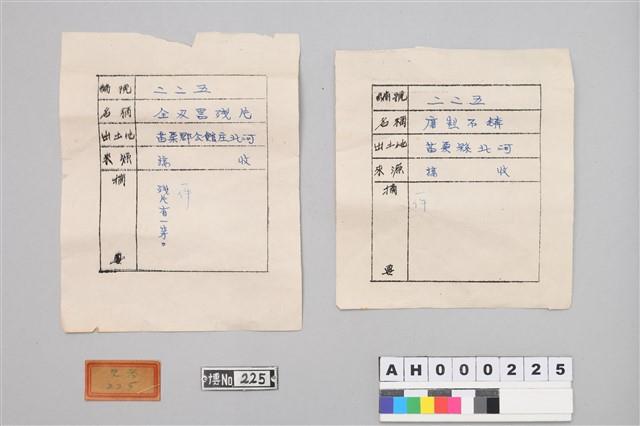 編號 二二五
名稱 全刃器残片
出土地 苗栗郡公館庄北河
來源 採收
摘要 残片有一等。
一件
編號 二二五
名稱 磨製石錛
出土地 苗栗縣北河
來源 採收
摘要
一件
225
博No 225
AH000225